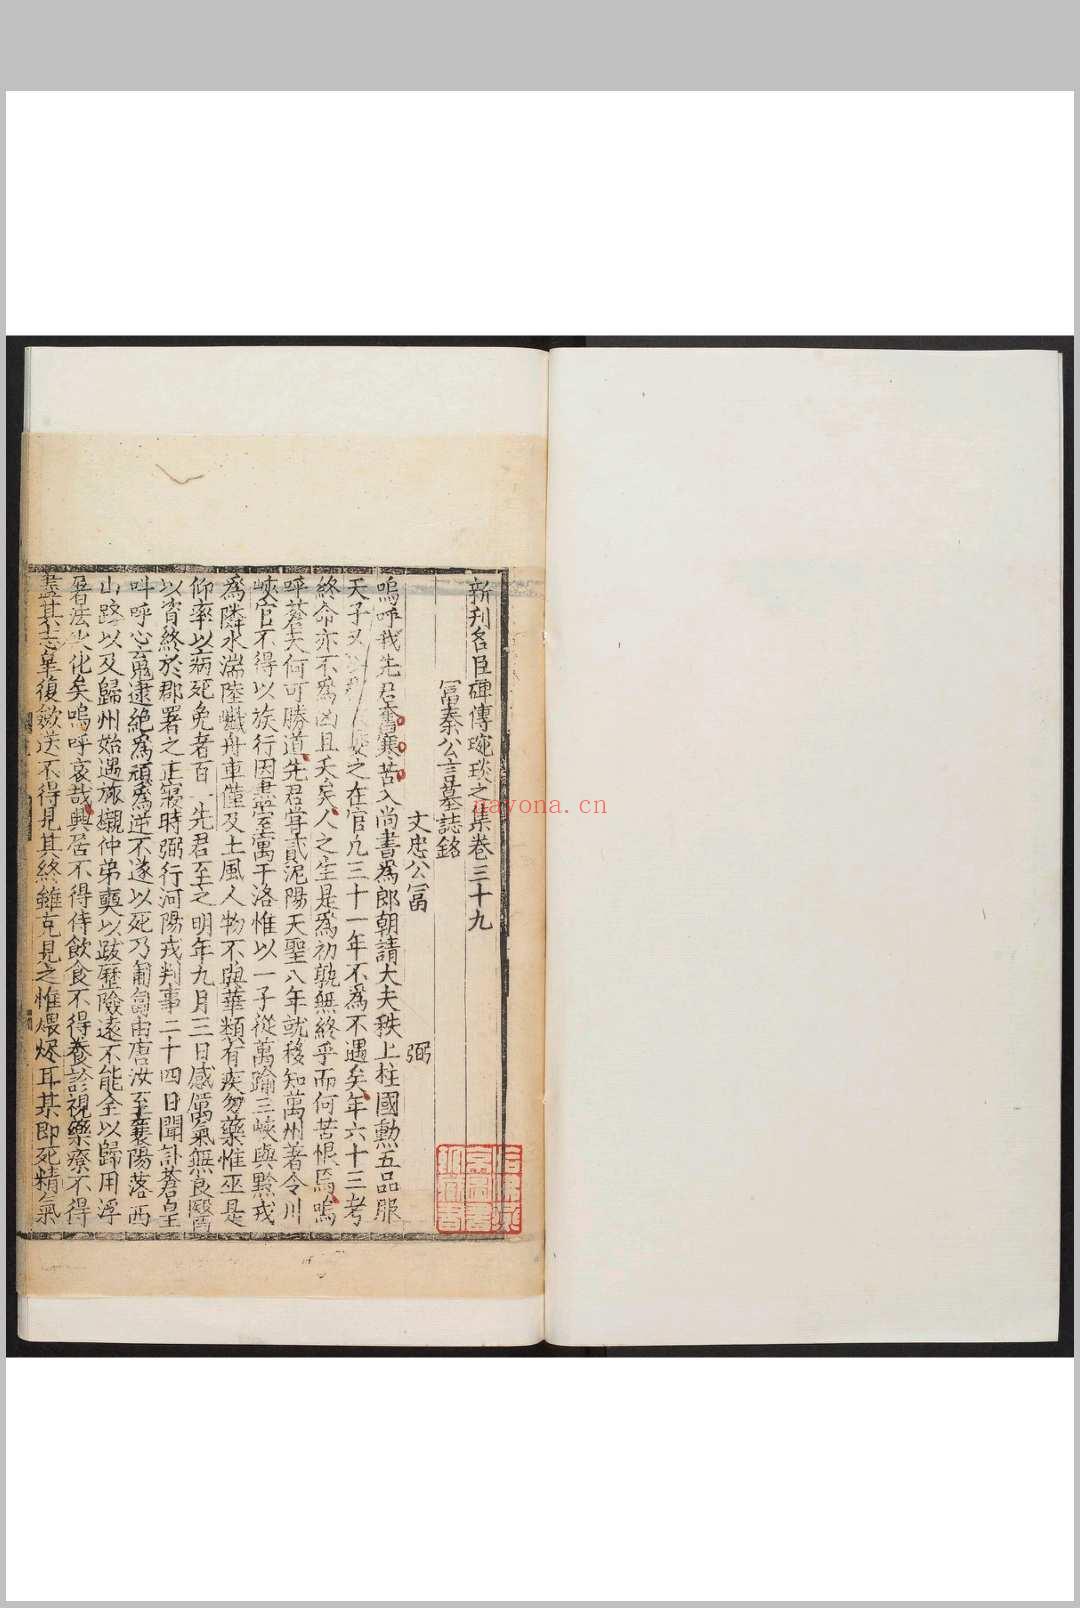 新刋名臣碑傳琬琰之集卷三十九
富秦公言墓誌銘
文忠公富 弼
嗚呼我先君奮寒苦入尚書為郎朝請大夫秩上柱國勲五品服
天子又 之在官凡三十一年不為不遇矣年六十三考
終命亦不為凶且夭矣人之生是為初孰無終乎而何苦恨焉嗚
呼蒼天何可勝道先君嘗貳泥陽天聖八年就移知萬州著令川
峽官不得以族行因盡室寓于洛惟以一子從萬踰三峽與黔戎
為隣水湍陸巇舟車僅及土風人物不與華類有疾勿藥惟巫是
仰率以病死免者百一先君至之明年九月三日感癘氣無良醫
以瘠終於郡署之正寢時弼行河陽戎判事二十四日聞訃蒼皇
呌呼心 逮絶為頑為逆不遂以死乃匍匐由唐汝至襄陽落西
山路以及歸州始遇旅櫬仲弟奭以跋歷險遠不能全以歸用浮
屠法火化矣嗚呼哀哉興居不得侍飲食不得養診視藥療不得
盡其志臯復歛送不得見其終雖克見之惟煨烬耳某即死精氣
nayona.cn